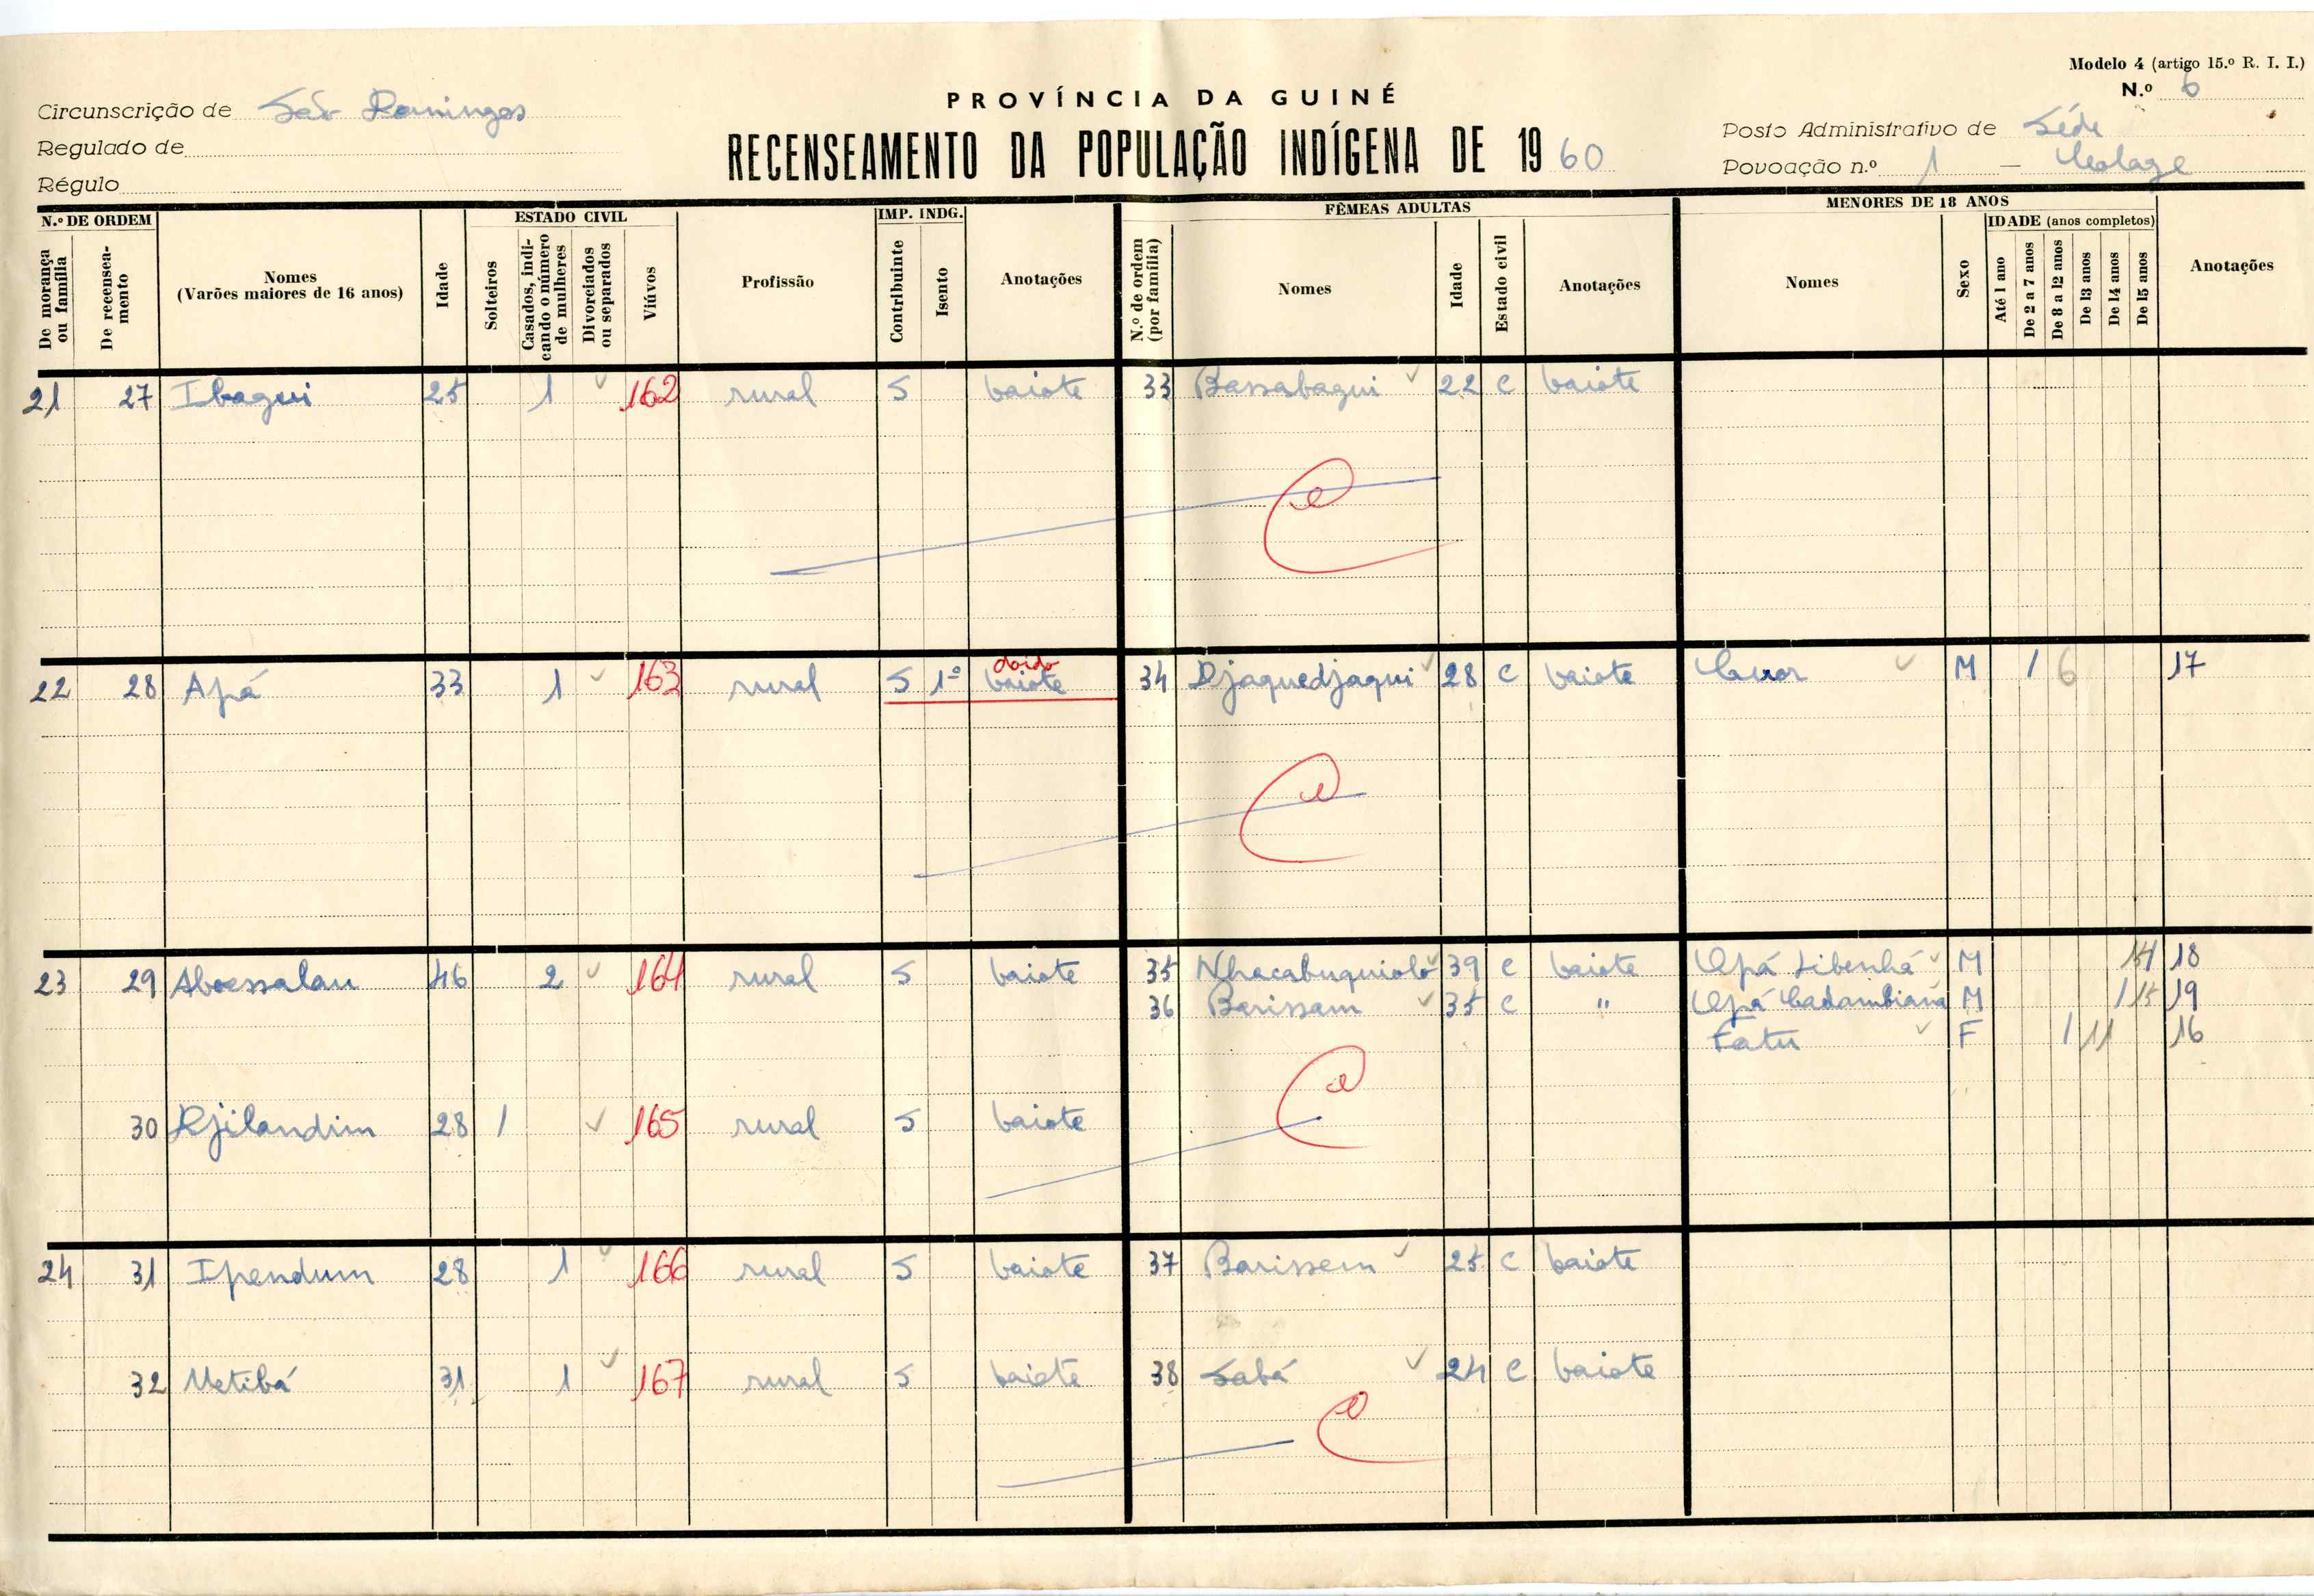 Modelo 4 (artigo 15.º R. I. I.)
N.º 6
PROVÍNCIA DA GUINÉ
RECENSEAMENTO DA POPULAÇÃO INDÍGENA DE 1960
Circunscrição de São Domingos
Regulado de
Régulo
Posto Administrativo de Séde
Povoação n.º 1 —
N.º DE ORDEM
De morança ou família
De recenseamento
Nomes (Varões maiores de 16 anos)
Idade
ESTADO CIVIL
Solteiros
Casados, indicando o número de mulheres
Divorciados ou separados
Viúvos
Profissão
IMP. INDG.
Contribuinte
Isento
Anotações
FÊMEAS ADULTAS
N.º de ordem (por família)
Nomes
Idade
Estado civil
Anotações
MENORES DE 18 ANOS
Nomes
Sexo
IDADE (anos completos)
Até 1 ano
De 2 a 7 anos
De 8 a 12 anos
De 13 anos
De 14 anos
De 15 anos
Anotações
21 27 Ibagui 25 1 162 rural S baiote 33 Bassabagui 22 C baiote
doido
22 28 Apá 33 1 163 rural S 1º baiote 34 Djaquedjaqui 28 C baiote M 1 6 17
23 29 Aboessalau 46 2 164 rural S baiote 35 Nhacabuquioló 39 C baiote Apá Libenhá M 14 18
36 Barissam 35 C " Apá Cadambiana M 1 15 19
Fatu F 1 11 16
30 Djilandim 28 1 165 rural S baiote
24 31 Ipendum 28 1 166 rural S baiote 37 Barissem 25 C baiote
32 Metibá 31 1 167 rural S baiote 38 Sabá 24 C baiote